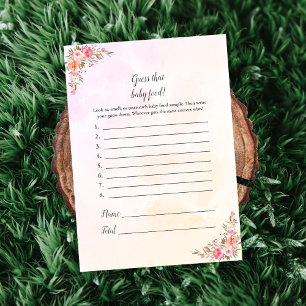 Guess that
baby food!
Look at, smell, or taste each baby food sample. Then write
your guess down. Whoever gets the most correct wins!
1.
2.
3.
4.
5.
6.
7.
8.
Name
Total